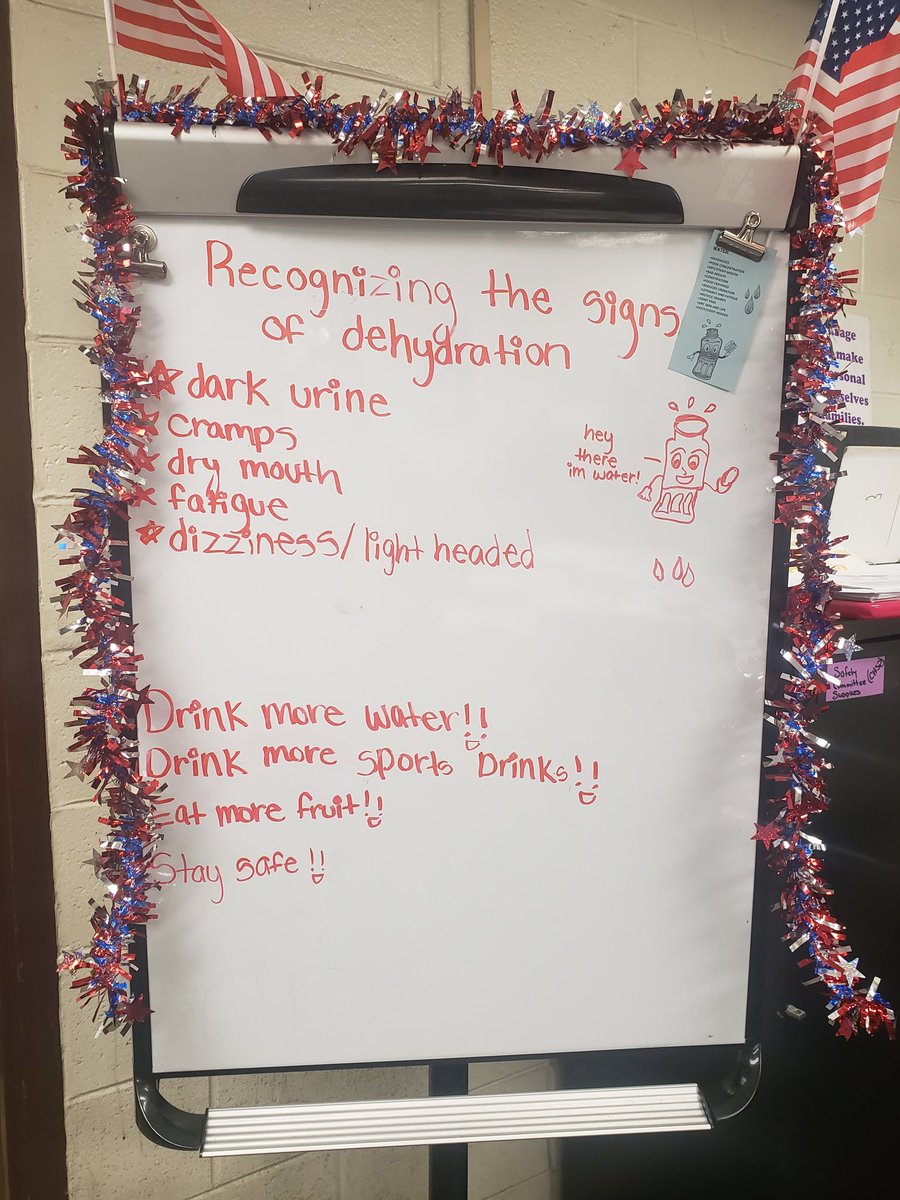 Recognizing the signs
of dehydration
dark urine
cramps
dry mouth
fatigue
dizziness/light headed
hey
there
im water!
Drink more water!!
Drink more sports Drinks!!
Eat more fruit!!
Stay safe!!
make
Safety
Committee
Supplies
families.